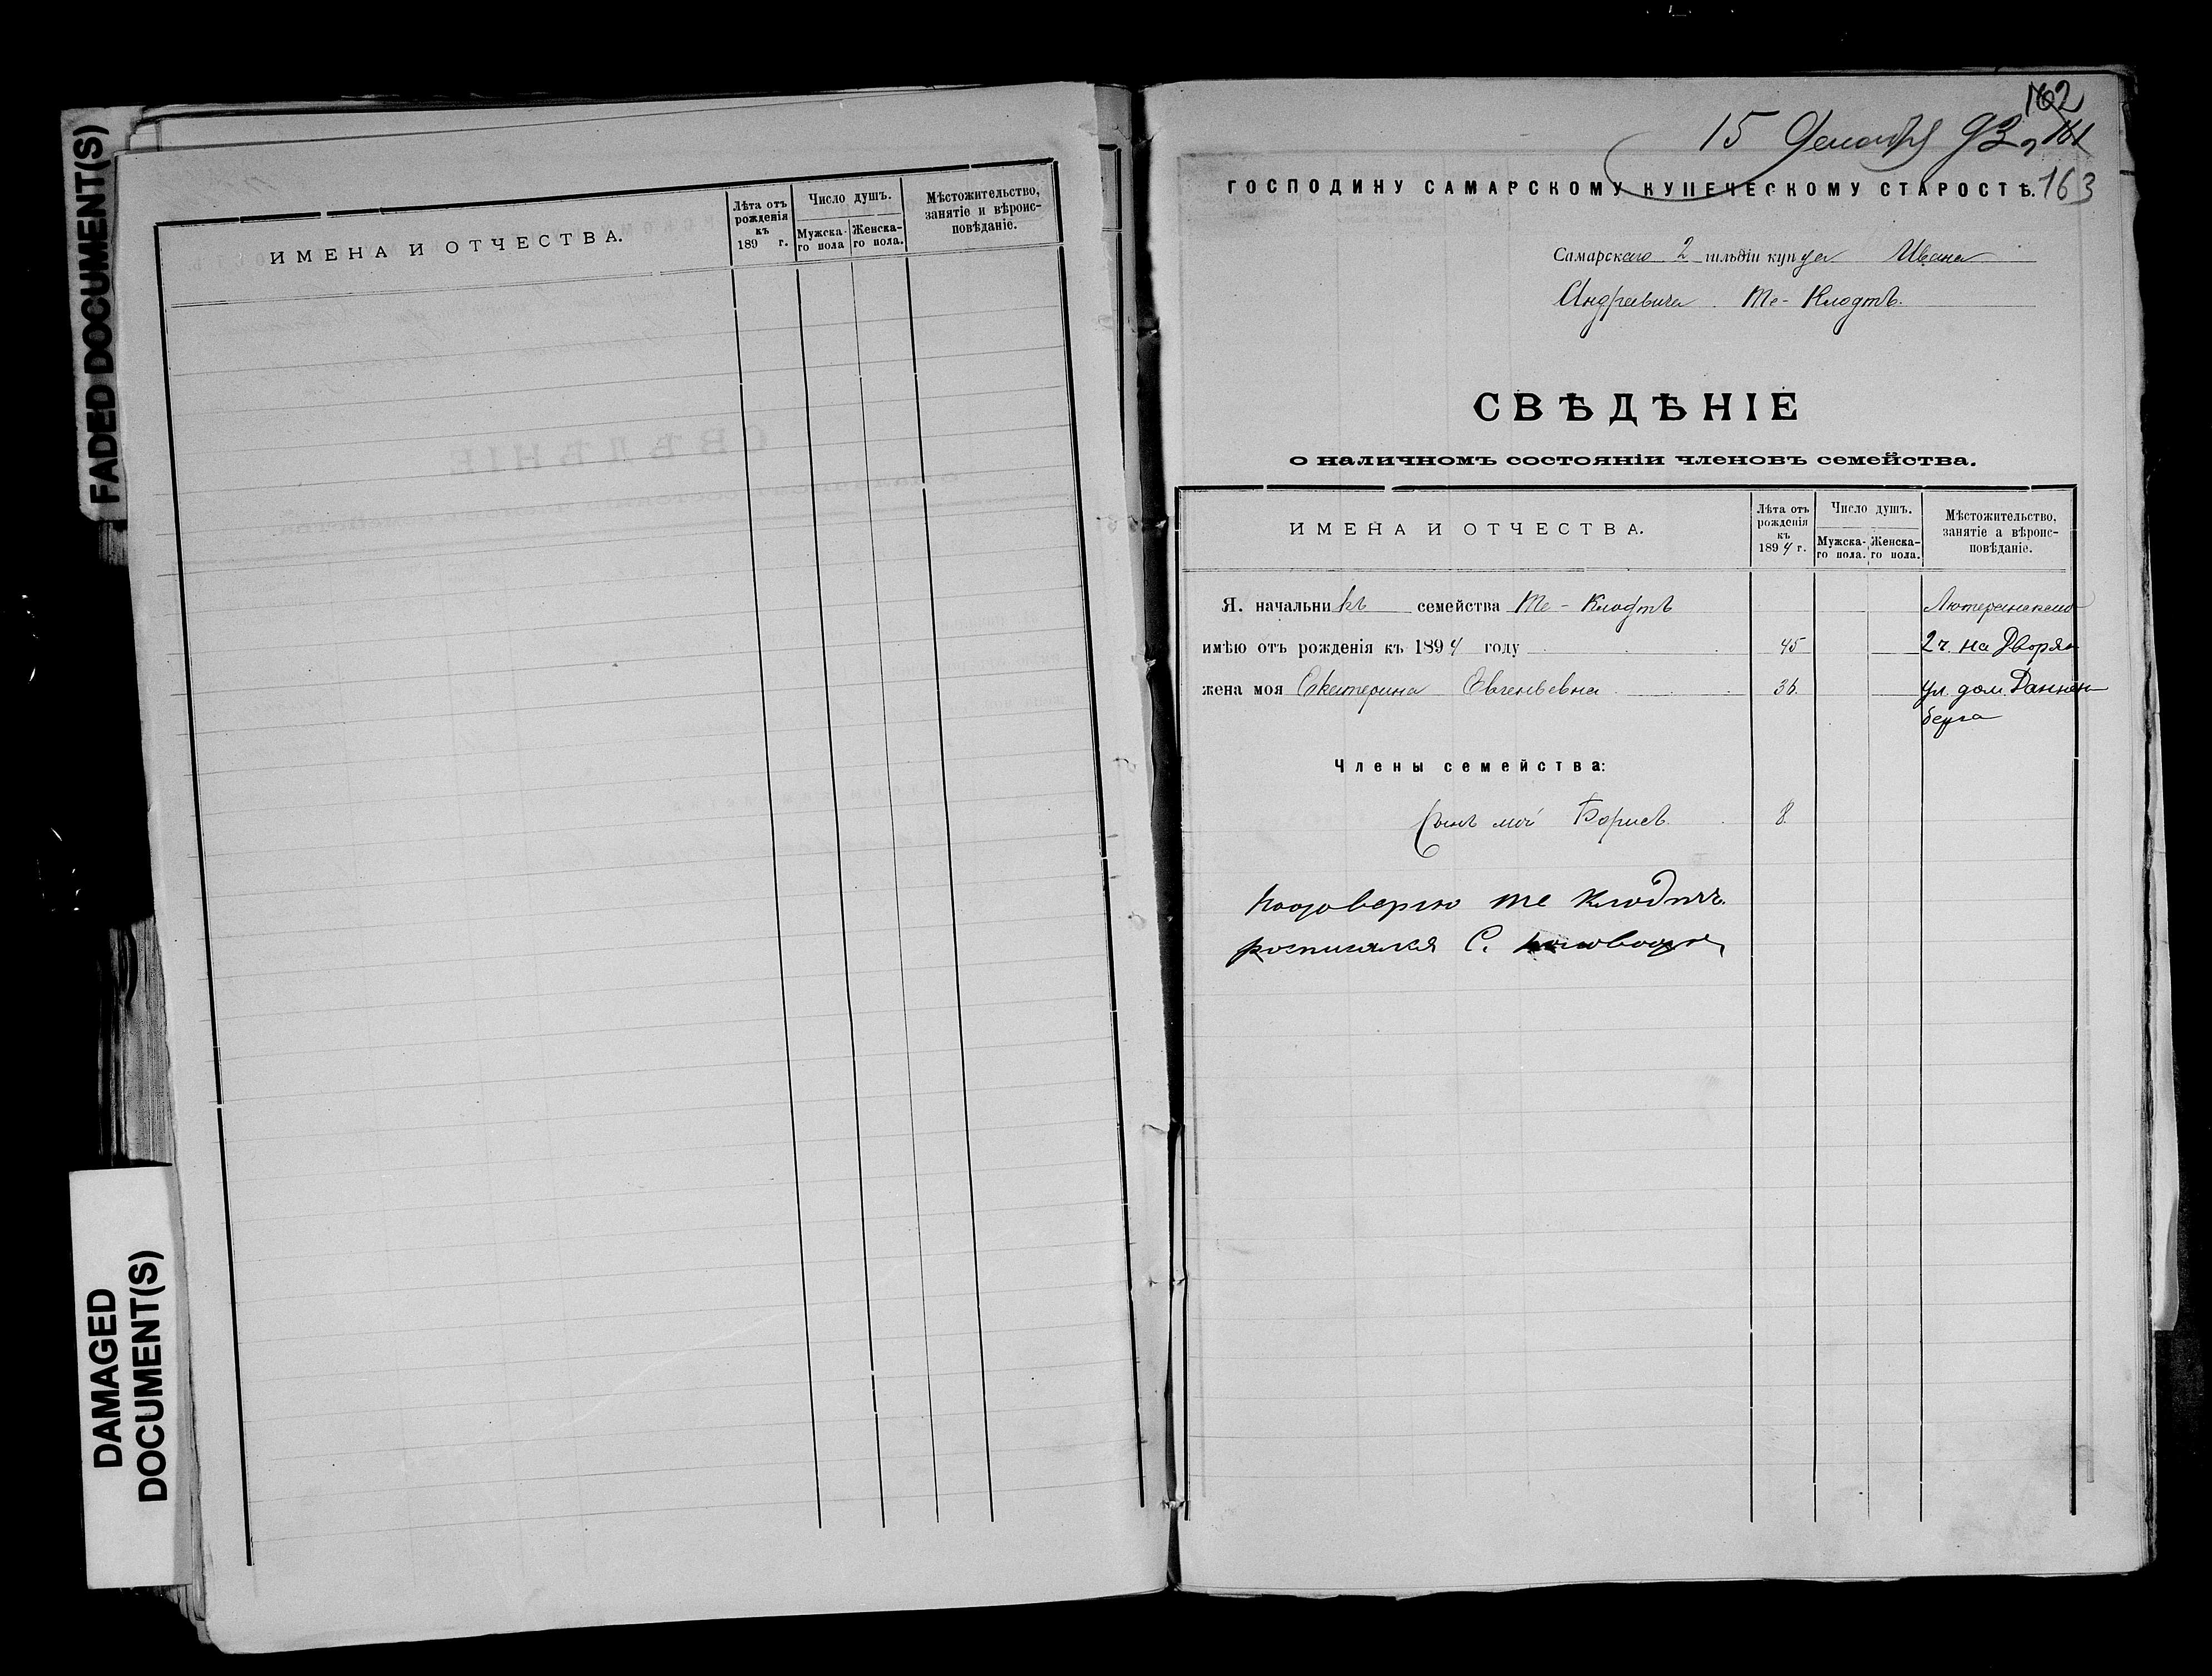 FADED DOCUMENT(S)
DAMAGED
DOCUMENT(S)
ИМЕНА И ОТЧЕСТВА.
Лѣта отъ
рожденія
къ
189 г.
Число душъ.
Мужска-
го пола
Женска-
го пола.
Мѣстожительство,
занятіе и вѣроис-
повѣданіе.
162
15 Декабря 93 г. 161
ГОСПОДИНУ САМАРСКОМУ КУПЕЧЕСКОМУ СТАРОСТѢ. 163
Самарскаго 2 гильдіи купца Ивана
Андреевича Те-Клодтъ.
СВѢДѢНІЕ
о наличномъ состояніи членовъ семейства.
ИМЕНА И ОТЧЕСТВА.
Лѣта отъ
рожденія
къ
1894 г.
Число душъ.
Мужска-
го пола.
Женска-
го пола.
Мѣстожительство,
занятіе а вѣроис-
повѣданіе.
Я. начальникъ семейства Те-Клодтъ Лютеранскаго
имѣю отъ рожденія къ 1894 году 45 2 ч. на Дворян
жена моя Екатерина Евгеньевна 36. ул. дом. Даннен
берга
Члены семейства:
Сынъ мой Борисъ. 8.
По доверию те Клодтъ.
росписался С.